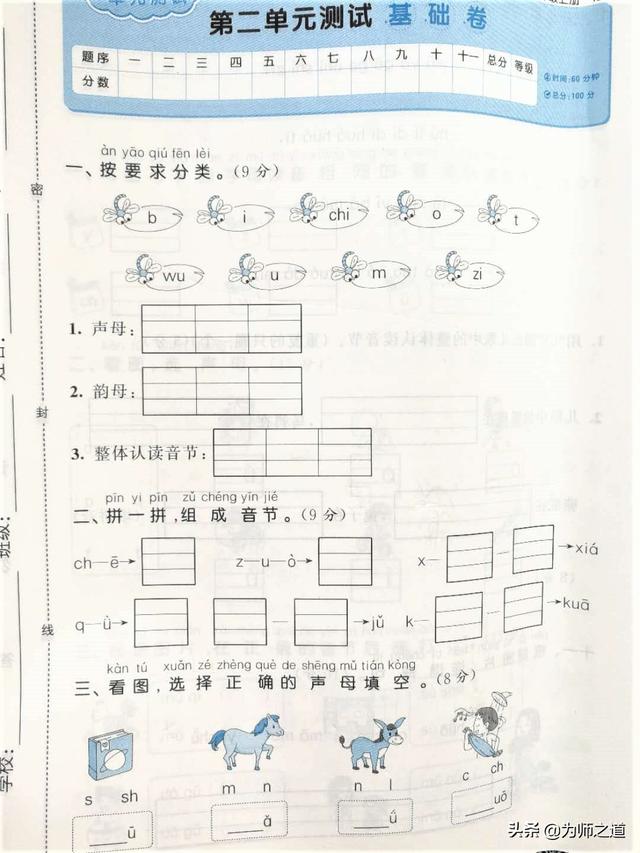 单元测试
第二单元测试 基础卷
题序 一 二 三 四 五 六 七 八 九 十 十一 总分 等级
分数
时间:60分钟
总分:100分
àn yāo qiú fēn lèi
一、按要求分类。(9分)
b i chi o t
wu u m zi
1. 声母:
2. 韵母:
3. 整体认读音节:
pīn yi pīn zǔ chéng yīn jié
二、拼一拼,组成音节。(9分)
ch—ē→ z—u—ò→ x— — →xiá
q—ù→ — →jǔ k— — →kuā
kàn tú xuǎn zé zhèng què de shēng mǔ tián kòng
三、看图,选择正确的声母填空。(8分)
s sh m n n l c ch
____ū ____ǎ ____ǘ ____uō
密
封
线
班级:
学校:
头条 @为师之道